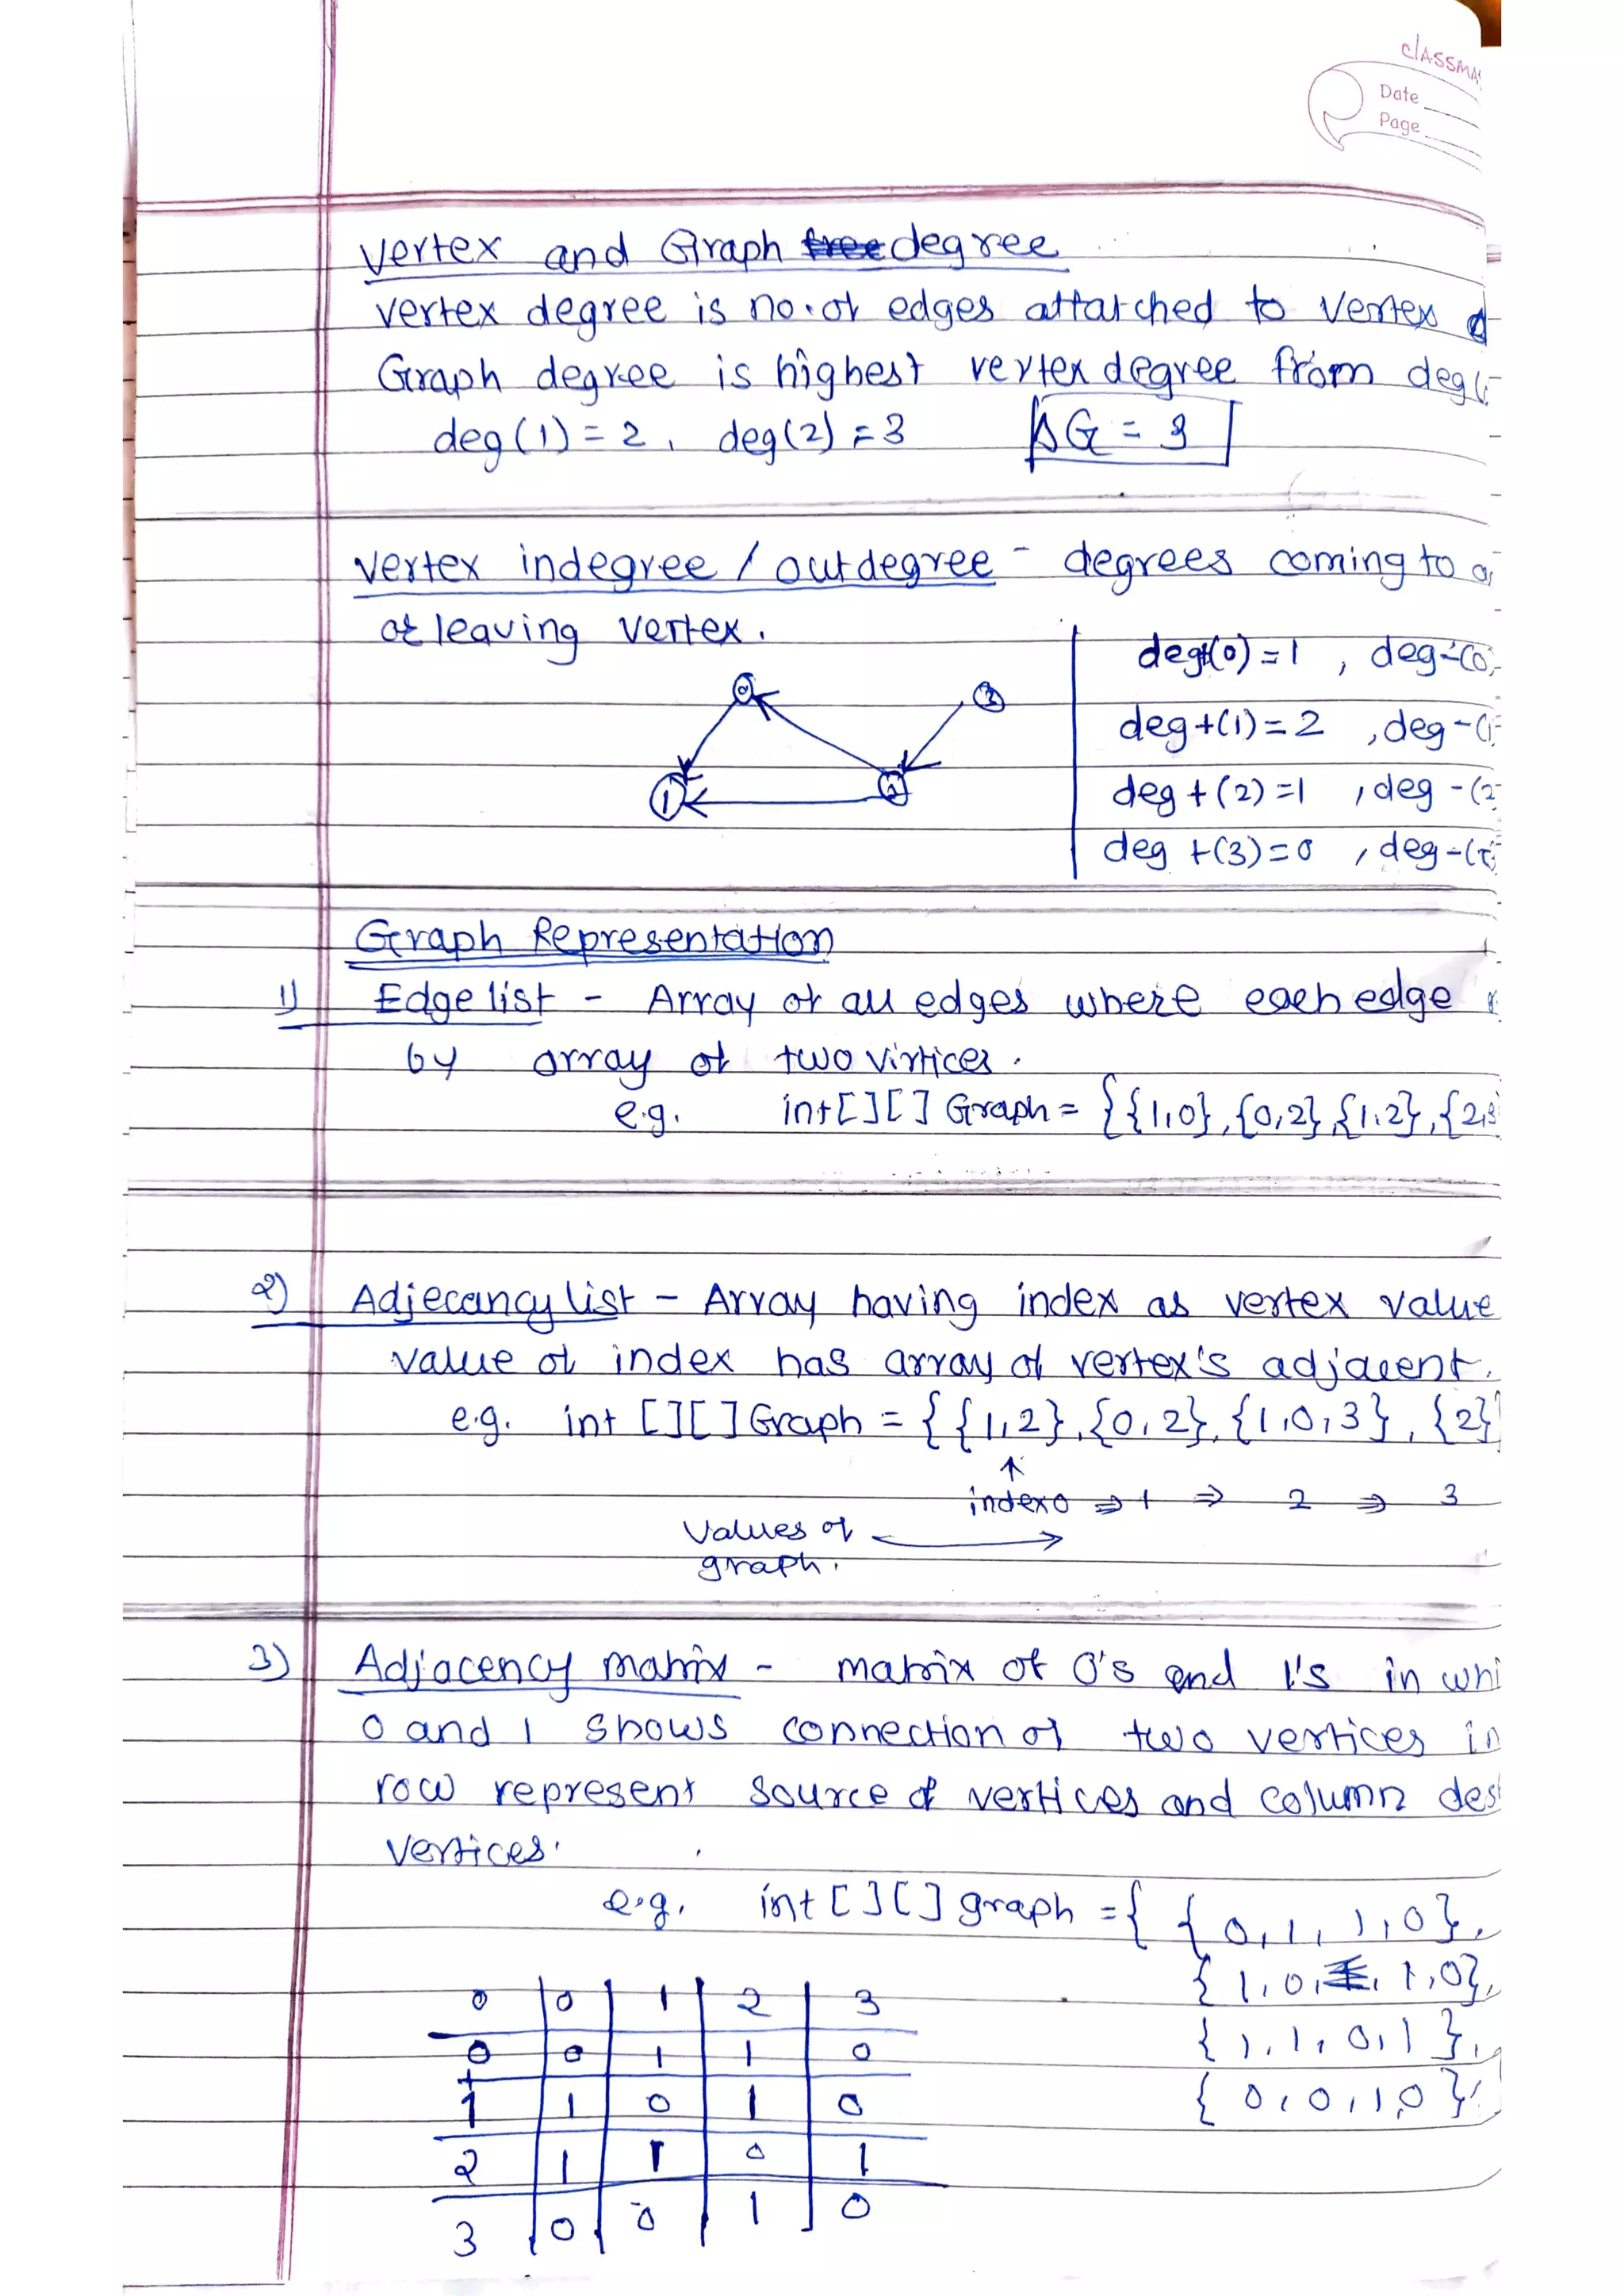 classma
Date
Page
Vertex and Graph degree
vertex degree is no. of edges attatched to vertex
Graph degree is highest vertex degree from deg(
deg(1) = 2, deg(2) = 3 ΔG = 3
vertex indegree / outdegree - degrees coming to
or leaving vertex.
deg+(0) = 1 , deg-(0)
deg+(1) = 2 , deg-(1)
deg+(2) = 1 , deg-(2
deg+(3) = 0 , deg-(
0 3
1 2
Graph Representation
1) Edge list - Array of all edges where each edge
by array of two virtices.
e.g. int[][] Graph = {{1,0},{0,2},{1,2},{2,3
2) Adjecancy list - Array having index as vertex value
value of index has array of vertex's adjacent.
e.g. int [][] Graph = {{1,2},{0,2},{1,0,3},{2}
↑
index 0 ⇒ 1 ⇒ 2 ⇒ 3
Values of
graph.
3) Adjacency matrix - matrix of 0's and 1's in whi
0 and 1 shows connection of two vertices in
row represent source of vertices and column des
vertices.
e.g. int [][] graph = { {0,1,1,0},
{1,0,1,0},
{1,1,0,1},
{0,0,1,0}
0 0 1 2 3
0 0 1 1 0
1 1 0 1 0
2 1 1 0 1
3 0 0 1 0